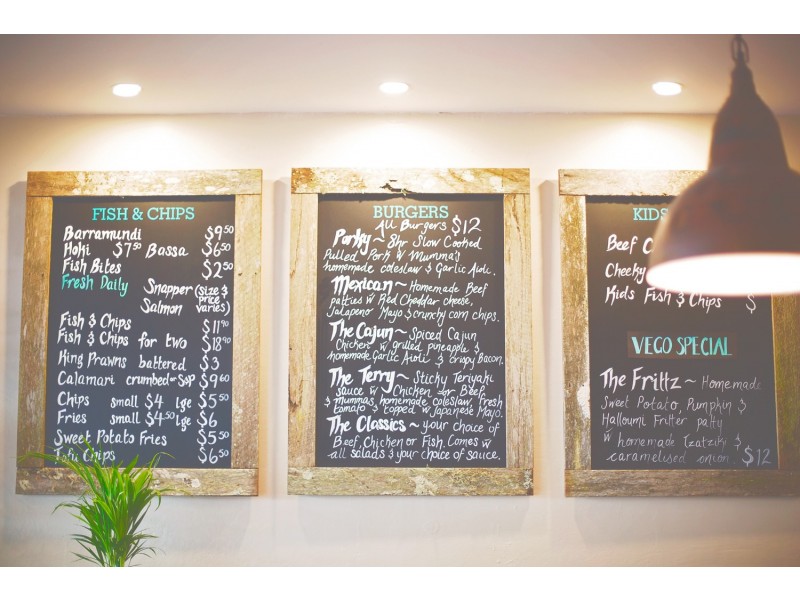 FISH & CHIPS
Barramundi $9.50
Hoki $7.50 Bassa $6.50
Fish Bites $2.50
Fresh Daily Snapper (size &
price
Salmon varies)
Fish & Chips $11.90
Fish & Chips for two $18.90
King Prawns battered $3
Calamari crumbed or S&P $9.60
Chips small $4 lge $5.50
Fries small $4.50 lge $6
Sweet Potato Fries $5.50
Tofu Chips $6.50
BURGERS
All Burgers $12
Porky ~ 8hr Slow Cooked
Pulled Pork w Mumma's
homemade coleslaw & Garlic Aioli.
Mexican ~ Homemade Beef
patties w Red Cheddar cheese,
Jalapeno Mayo & crunchy corn chips.
The Cajun ~ Spiced Cajun
Chicken w grilled pineapple &
homemade Garlic Aioli & crispy Bacon.
The Terry ~ Sticky Teriyaki
sauce w Chicken or Beef
& mummas homemade coleslaw, fresh
tomato & topped w Japanese Mayo.
The Classics ~ your choice of
Beef, Chicken or Fish. Comes w
all salads & your choice of sauce.
KIDS
Beef
Cheeky
Kids Fish & Chips $
VEGO SPECIAL
The Frittz ~ Homemade
Sweet Potato, Pumpkin &
Halloumi Fritter patty
w homemade Tzatziki &
caramelised onion. $12